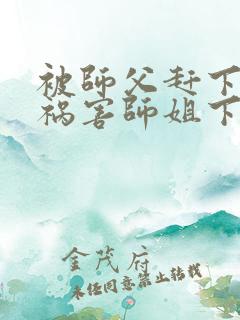 被師父赶下
祸害師姐下
金茂府
未经同意禁止转载